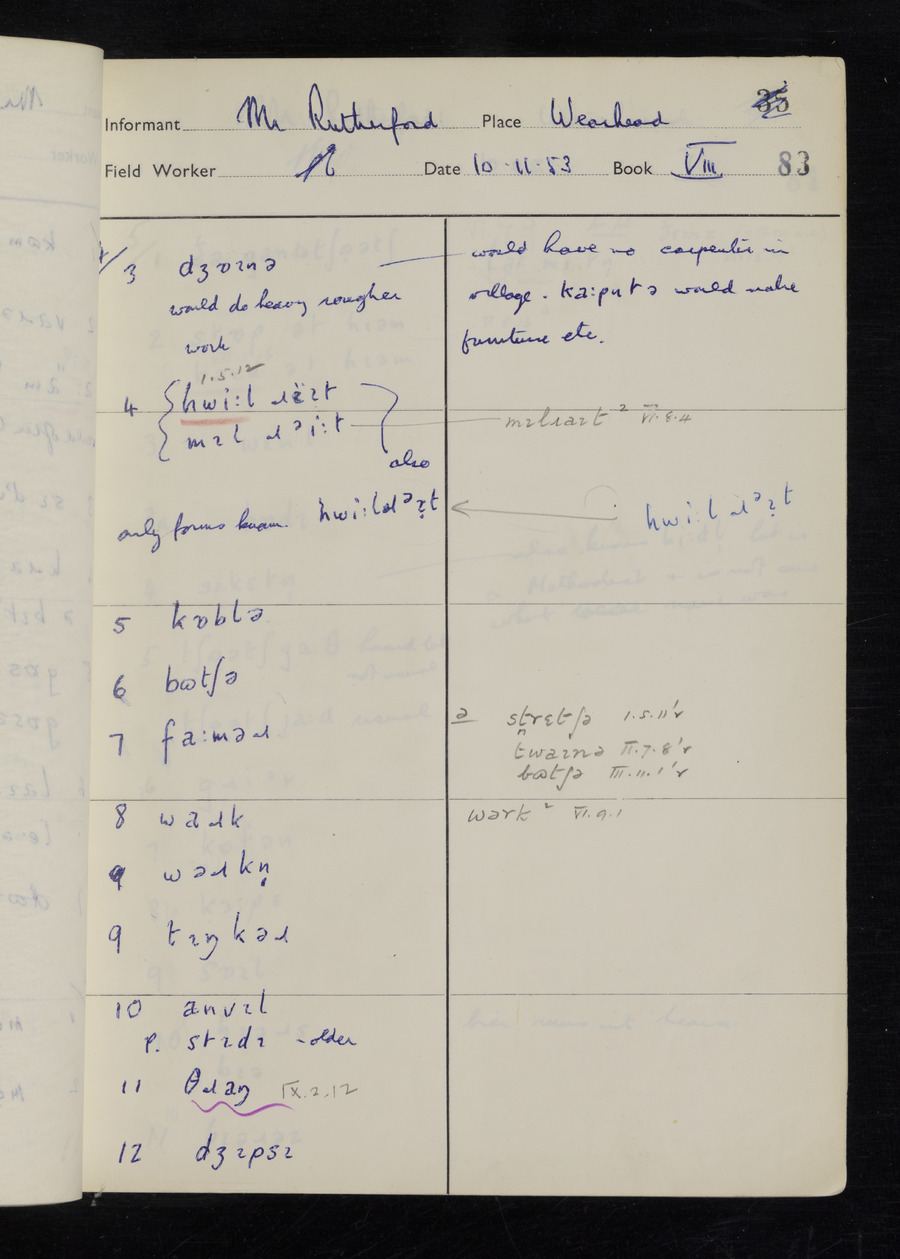 35
Informant Mr Rutherford Place Wearhead
Field Worker Date 10·11·53 Book VIII 83
/3 dʒɒɪnə
would do heavy rougher
work
would have no carpenter in
village. ka:pntə would make
furniture etc.
1.5.12
4 hwi:l ɹɛ̈ɪt
mɪl ɹᵊi:t
also
mɪlraɪt ² VI.8.4
only forms known. hwi:lɹᵊɪ̣t
hwi:l ɹᵊɪ̣t
5 kɒblə
6 bɷtʃə
7 fa:məɹ
ə strɛtʃə 1.5.11'r
t̪waɪnə II.7.8'r
bɷtʃə III.11.1'r
8 waɹk
wərk ² VI.9.1
9 wəɹkn̩
9 tɪŋkəɹ
10 anvɪl
P. stɪdɪ - older
11 θɹaŋ IX.2.12
12 dʒɪpsɪ